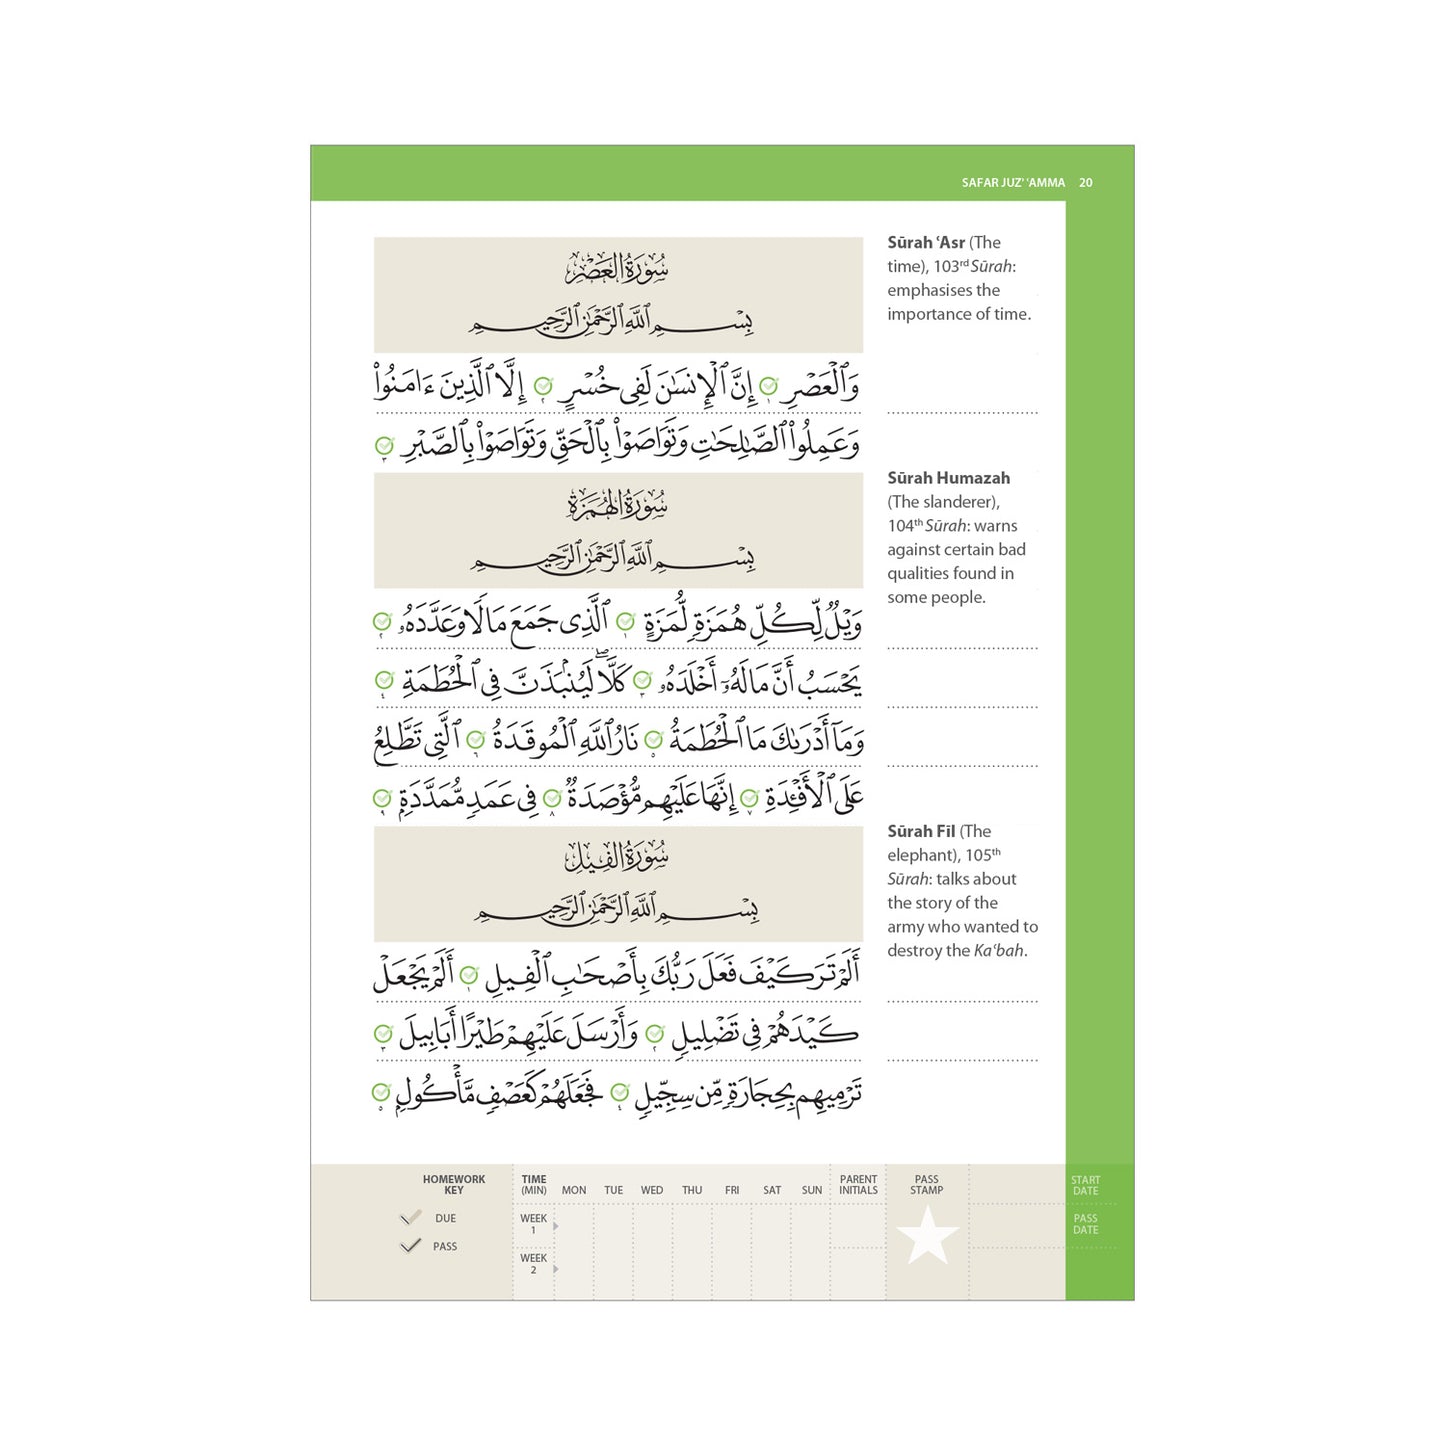 SAFAR JUZ' 'AMMA 20
سُورَةُ العَصْرِ
بِسْمِ ٱللَّهِ ٱلرَّحْمَٰنِ ٱلرَّحِيمِ
وَٱلْعَصْرِ ١ إِنَّ ٱلْإِنسَٰنَ لَفِى خُسْرٍ ٢ إِلَّا ٱلَّذِينَ ءَامَنُوا۟
وَعَمِلُوا۟ ٱلصَّٰلِحَٰتِ وَتَوَاصَوْا۟ بِٱلْحَقِّ وَتَوَاصَوْا۟ بِٱلصَّبْرِ ٣
سُورَةُ الهُمَزَةِ
بِسْمِ ٱللَّهِ ٱلرَّحْمَٰنِ ٱلرَّحِيمِ
وَيْلٌ لِّكُلِّ هُمَزَةٍ لُّمَزَةٍ ١ ٱلَّذِى جَمَعَ مَالًا وَعَدَّدَهُۥ ٢
يَحْسَبُ أَنَّ مَالَهُۥٓ أَخْلَدَهُۥ ٣ كَلَّا ۖ لَيُنۢبَذَنَّ فِى ٱلْحُطَمَةِ ٤
وَمَآ أَدْرَىٰكَ مَا ٱلْحُطَمَةُ ٥ نَارُ ٱللَّهِ ٱلْمُوقَدَةُ ٦ ٱلَّتِى تَطَّلِعُ
عَلَى ٱلْأَفْـِٔدَةِ ٧ إِنَّهَا عَلَيْهِم مُّؤْصَدَةٌ ٨ فِى عَمَدٍ مُّمَدَّدَةٍۭ ٩
سُورَةُ الفِيلِ
بِسْمِ ٱللَّهِ ٱلرَّحْمَٰنِ ٱلرَّحِيمِ
أَلَمْ تَرَ كَيْفَ فَعَلَ رَبُّكَ بِأَصْحَٰبِ ٱلْفِيلِ ١ أَلَمْ يَجْعَلْ
كَيْدَهُمْ فِى تَضْلِيلٍ ٢ وَأَرْسَلَ عَلَيْهِمْ طَيْرًا أَبَابِيلَ ٣
تَرْمِيهِم بِحِجَارَةٍ مِّن سِجِّيلٍ ٤ فَجَعَلَهُمْ كَعَصْفٍ مَّأْكُولٍۭ ٥
Sūrah ʿAsr (The
time), 103rd Sūrah:
emphasises the
importance of time.
Sūrah Humazah
(The slanderer),
104th Sūrah: warns
against certain bad
qualities found in
some people.
Sūrah Fīl (The
elephant), 105th
Sūrah: talks about
the story of the
army who wanted to
destroy the Kaʿbah.
HOMEWORK
KEY
DUE
PASS
TIME
(MIN) MON TUE WED THU FRI SAT SUN
WEEK
1
WEEK
2
PARENT
INITIALS
PASS
STAMP
START
DATE
PASS
DATE